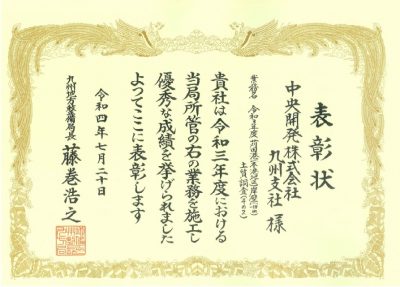 表彰状
中央開発株式会社
九州支社 様
業務名 令和3年度
土質調査
貴社は令和三年度における
当局所管の右の業務を施工し
優秀な成績を挙げられました
よってここに表彰します
令和四年七月二十日
九州地方整備局長 藤巻浩之